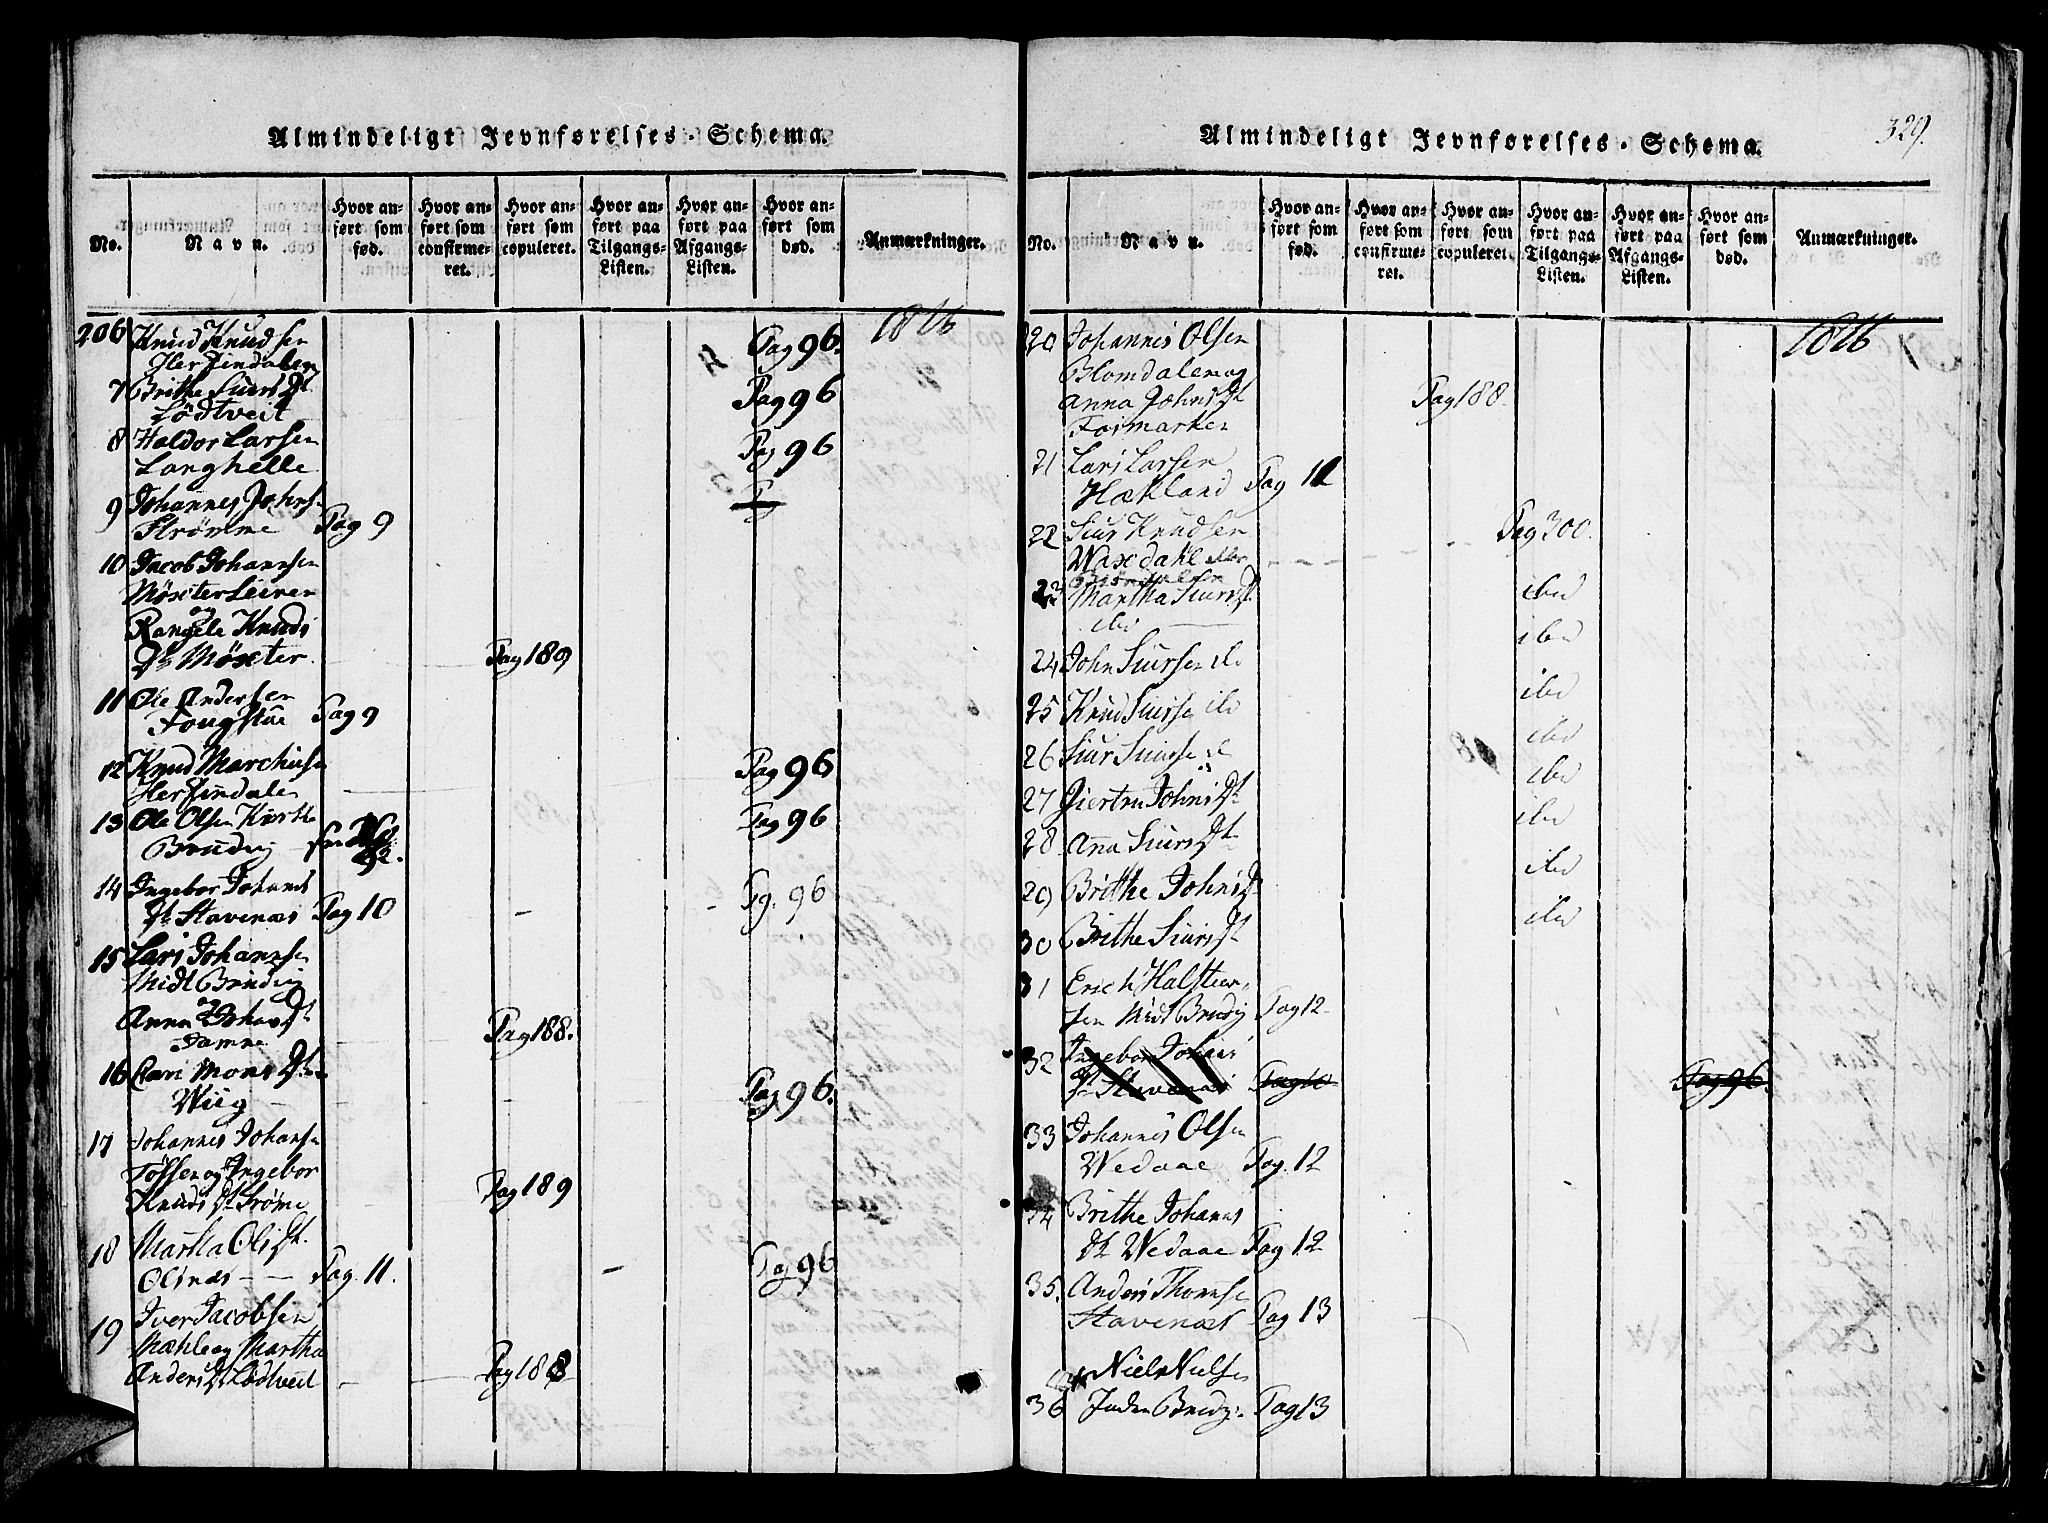 Almindeligt Jevnførelses-Schema.
No.
Navn.
Hvor an-
ført som
fød.
Hvor an-
ført som
confirme-
ret.
Hvor an-
ført som
copuleret.
Hvor an-
ført paa
Tilgangs-
Listen.
Hvor an-
ført paa
Afgangs-
Listen.
Hvor an-
ført som
død.
Anmærkninger.
1816
206 Knud Knudsen Pag 96.
Herfindalen
7 Brithe Siursdt. Pag 96
Lödtveit
8 Haldor Larsen Pag 96
Langhelle
9 Johannes Johns.
Strömme Pag 9
10 Jacob Johannsen
Möxter Leiren
og
Rangele Knuds
dt Möxter Pag 189
11 Ole Andersen
Pag 9
12 Knud Marchusen Pag 96
Herfindalen
13 Ole Olsen Pag 96
Brudvig
14 Ingebor Johannes
dt. Stavenæs Pag 10 Pg. 96
15 Lars Johannsen
Midt Brudvig
og
Anna Johansdt
Pag 188.
16 Cari Monsdt. Pag 96.
Wiig
17 Johannes Johansen
Tössen og Ingebor
Knudsdt Ströme Pag 189
18 Martha Olsdt.
Olsnæs Pag. 11. Pag 96
19 Iver Jacobsen
Mæhle og Martha
Andersdt Lödtveit Pag 188
Almindeligt Jevnførelses-Schema.
329.
No.
Navn.
Hvor an-
ført som
fød.
Hvor an-
ført som
confirme-
ret.
Hvor an-
ført som
copuleret.
Hvor an-
ført paa
Tilgangs-
Listen.
Hvor an-
ført paa
Afgangs-
Listen.
Hvor an-
ført som
død.
Anmærkninger.
1816
20 Johannes Olsen
Blomdalen og
Anna Johnsdt Pag 188.
Fosmarken
21 Lars Larsen
Hækland Pag 11
22 Siur Knudsen Pag 300.
Waxdahl
23 Martha Siursdt ibid
24 John Siursen ibid
25 Knud Siursen ibid
26 Siur Siursen ibid
27 Giertru Johnsdt ibid
28 Anna Siursdt ibid
29 Brithe Johnsdt ibid
30 Brithe Siursdt ibid
31 Erich Halsteen-
sen Midt Brudvig Pag 12
32 Ingebor Johns
dt Stavenæs Pag 10 Pag 96.
33 Johannes Olsen
Wedaae Pag. 12
34 Brithe Johannes
dt Wedaae Pag 12
35. Anders Thomsen
Stavenæs Pag 13
Niels Nielsen
36 Indre Brudv. Pag 13